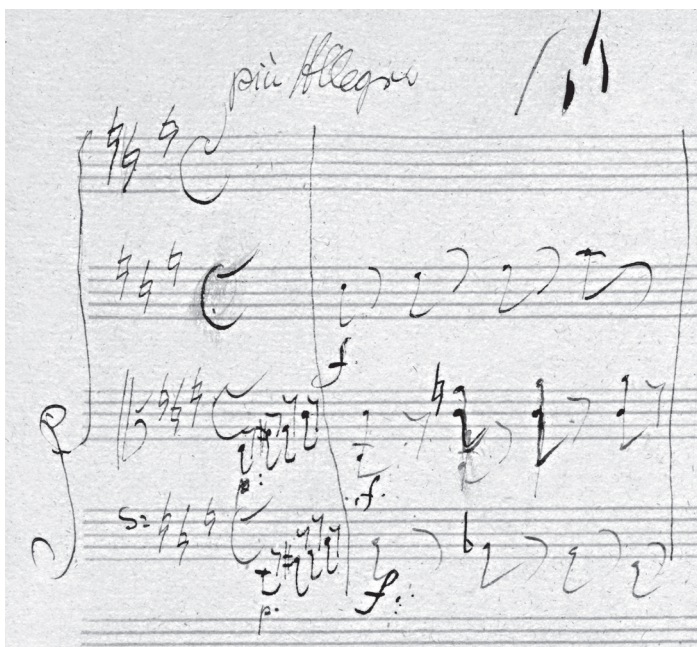 più Allegro
f.
p: f.
p. f: